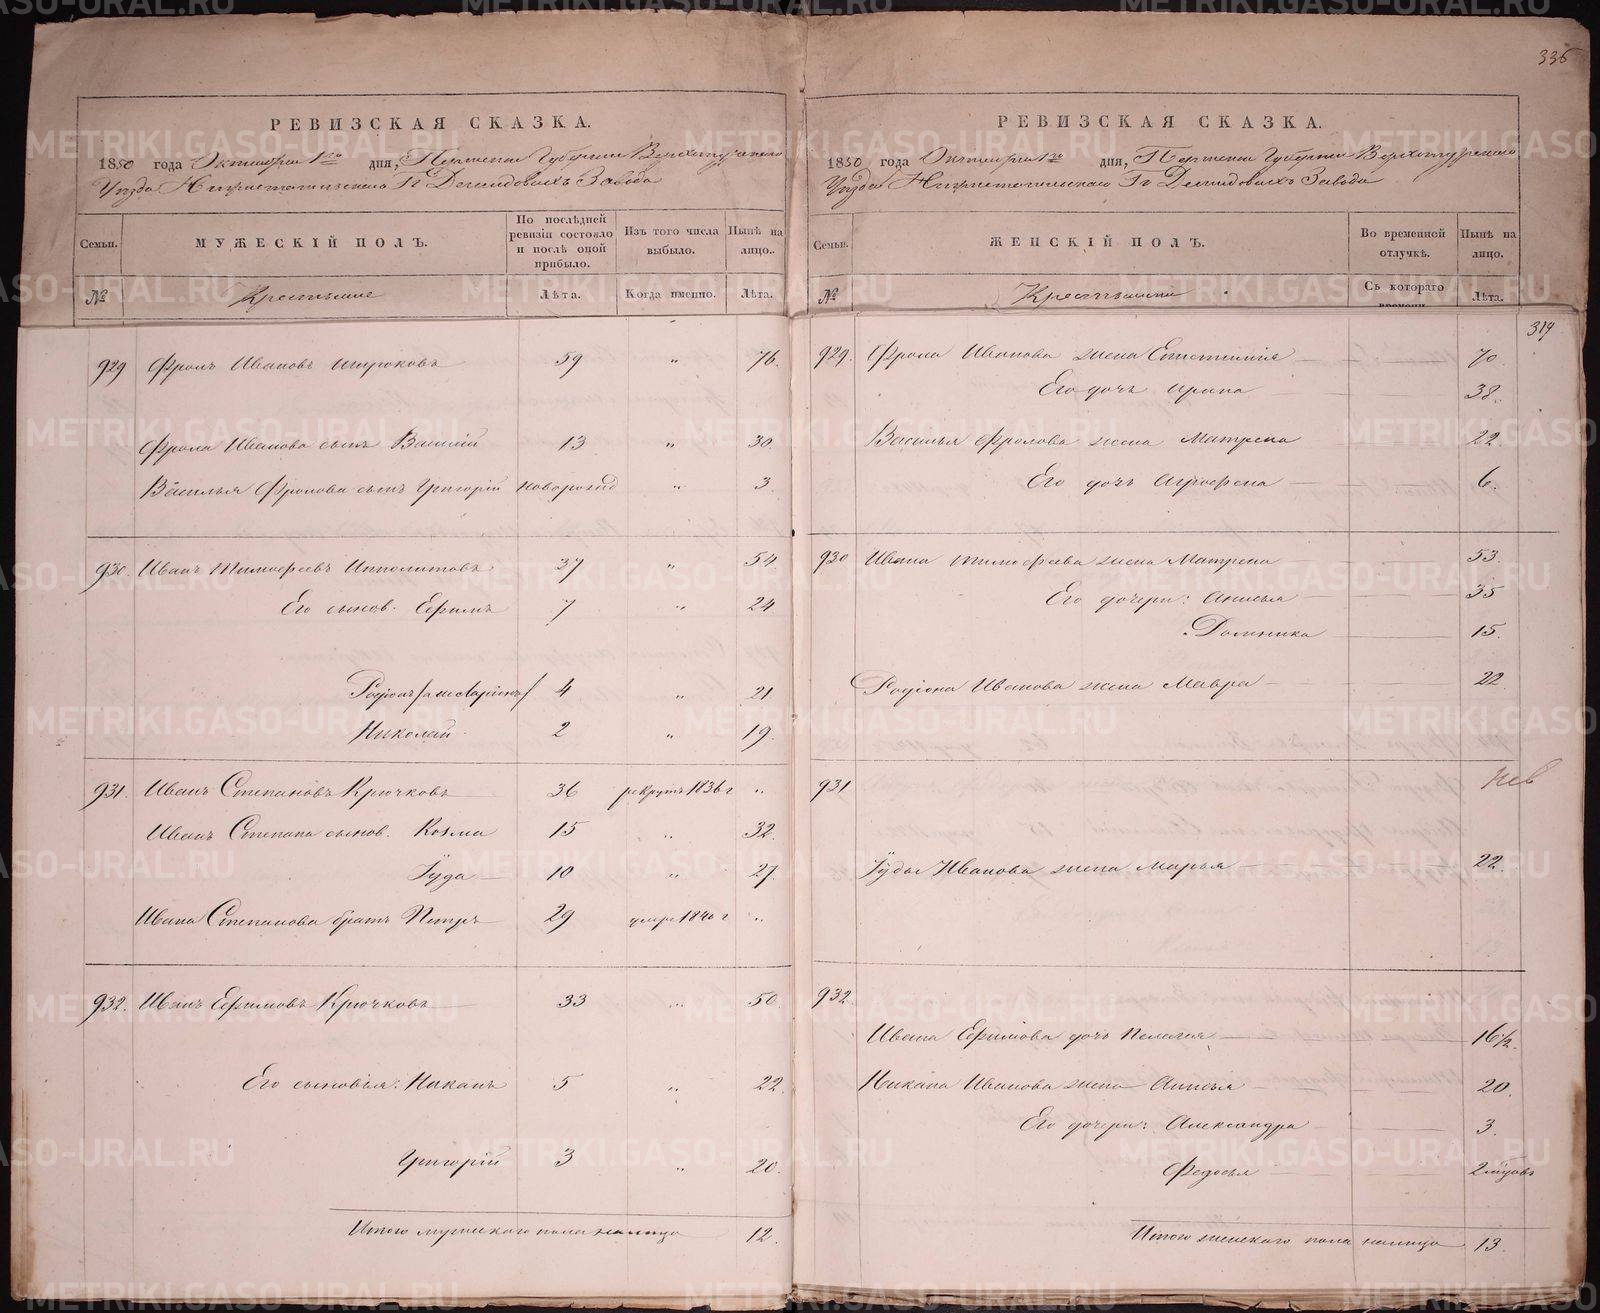 336
РЕВИЗСКАЯ СКАЗКА.
1850 года Октября 1го дня, Пермской Губернии Верхотурскаго
Уѣзда Нижнетагильскаго Гг Демидовыхъ Завода
Семьи.
МУЖЕСКІЙ ПОЛЪ.
По послѣдней ревизіи состояло и послѣ оной прибыло.
Изъ того числа выбыло.
Нынѣ на лицо.
№
Крестьяне
Лѣта.
Когда именно.
Лѣта.
929 Фролъ Ивановъ 59 " 76.
Фрола Иванова сынъ Василій 13 " 30.
Василья Фролова сынъ Григорій новорожд " 3
930. Иванъ Тимофеевъ Ипполитовъ 37 " 54
Его сынов. Ефимъ 7 " 24
Родіонъ /онъ же Ларіонъ/ 4 " 21
Николай 2 " 19.
931. Иванъ Степановъ Крючковъ 36 рекрутъ 1836 г "
Иванъ Степана сынов. Козма 15 " 32.
Іуда 10 " 27.
Ивана Степанова братъ Петръ 29 умре 1840 г "
932. Иванъ Ефимовъ Крючковъ 33 " 50.
Его сыновья: Никанъ 5 " 22
Григорій 3 " 20.
Итого мужескаго пола налицо 12.
РЕВИЗСКАЯ СКАЗКА.
1850 года Октября 1го дня, Пермской Губерніи Верхотурскаго
Уѣзда Нижнетагильскаго Гг Демидовыхъ Завода
Семьи.
ЖЕНСКІЙ ПОЛЪ.
Во временной отлучкѣ.
Нынѣ на лицо.
№
Крестьянки
Съ котораго времени.
Лѣта.
319
929. Фрола Иванова жена 70.
Его дочь Ирина 38.
Василья Фролова жена Матрена 22.
Его дочь Агрофена 6.
930 Ивана Тимофеева жена Матрена 53.
Его дочери: Анисья 35
Домника 15.
Родіона Иванова жена Мавра 22.
931
Іуды Иванова жена Марья 22.
932.
Ивана Ефимова дочь Пелагия 16½.
Никана Иванова жена Анисья 20.
Его дочери: Александра 3.
Федосья 2 мѣсяцовъ
Итого женскаго пола налицо 13.
METRIKI.GASO-URAL.RU